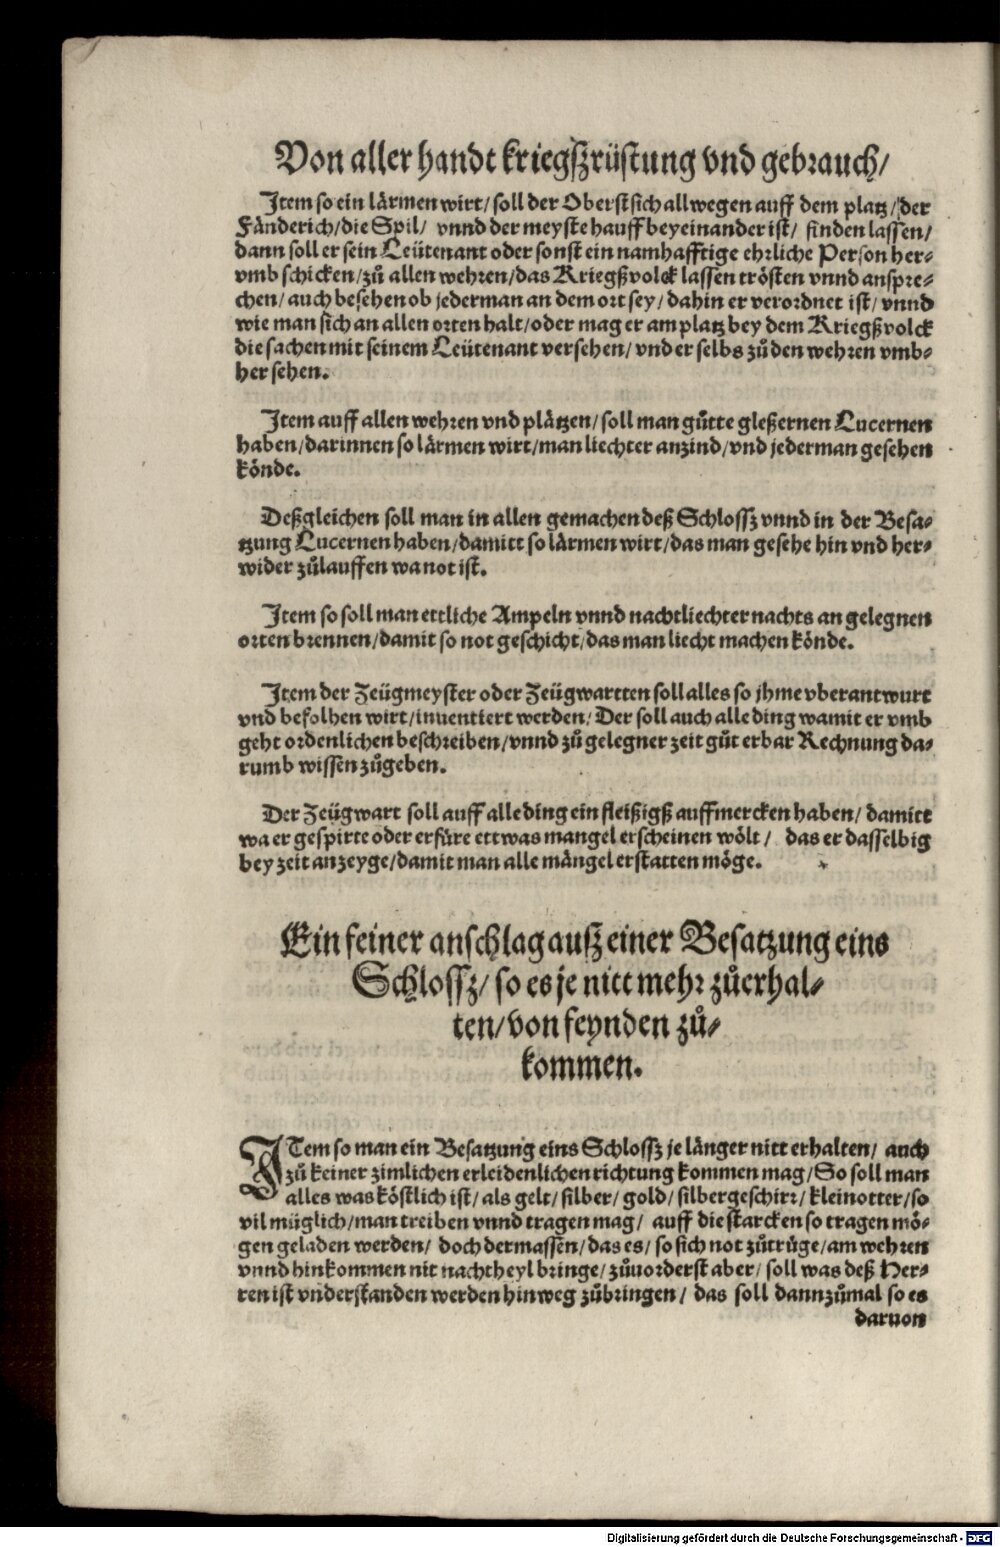 Von aller handt kriegßrüstung vnd gebrauch/
Item so ein lärmen wirt/ soll der Oberst sich allwegen auff dem platz/ der
Fänderich/ die Spil/ vnnd der meyste hauff beyeinander ist/ finden lassen/
dann soll er sein Leütenant oder sonst ein namhafftige ehrliche Person her-
vmb schicken/ zů allen wehren/ das Kriegßvolck lassen trösten vnnd anspre-
chen/ auch besehen ob jederman an dem ort sey/ dahin er verordnet ist/ vnnd
wie man sich an allen orten halt/ oder mag er am platz bey dem Kriegßvolck
die sachen mit seinem Leütenant versehen/ vnd er selbs zů den wehren vmb-
her sehen.
Item auff allen wehren vnd plätzen/ soll man gůtte gleßernen Lucernen
haben/ darinnen so lärmen wirt/ man liechter anzind/ vnd jederman gesehen
könde.
Deßgleichen soll man in allen gemachen deß Schlossz vnnd in der Besa-
tzung Lucernen haben/ damitt so lärmen wirt/ das man gesehe hin vnd her-
wider zůlauffen wa not ist.
Item so soll man ettliche Ampeln vnnd nachtliechter nachts an gelegnen
orten brennen/ damit so not geschicht/ das man liecht machen könde.
Item der Zeügmeyster oder Zeügwartten soll alles so jhme vberantwurt
vnd befolhen wirt/ inuentiert werden/ Der soll auch alle ding wamit er vmb
geht ordenlichen beschreiben/ vnnd zů gelegner zeit gůt erbar Rechnung da-
rumb wissen zůgeben.
Der Zeügwart soll auff alle ding ein fleißigß auffmercken haben/ damitt
wa er gespirte oder erfüre ettwas mangel erscheinen wölt/ das er dasselbig
bey zeit anzeyge/ damit man alle mängel erstatten möge.
Ein feiner anschlag auß einer Besatzung eins
Schlossz/ so es je nitt mehr zůerhal-
ten/ von feynden zů-
kommen.
ITem so man ein Besatzung eins Schlossz je länger nitt erhalten/ auch
zů keiner zimlichen erleidenlichen richtung kommen mag/ So soll man
alles was köstlich ist/ als gelt/ silber/ gold/ silbergeschirr/ kleinotter/ so
vil müglich/ man treiben vnnd tragen mag/ auff die starcken so tragen mö-
gen geladen werden/ doch dermassen/ das es/ so sich not zůtrüge/ am wehren
vnnd hinkommen nit nachtheyl bringe/ zůuorderst aber/ soll was deß Her-
ren ist vnderstanden werden hinweg zůbringen/ das soll dannzůmal so es
daruon
Digitalisierung gefördert durch die Deutsche Forschungsgemeinschaft - DFG